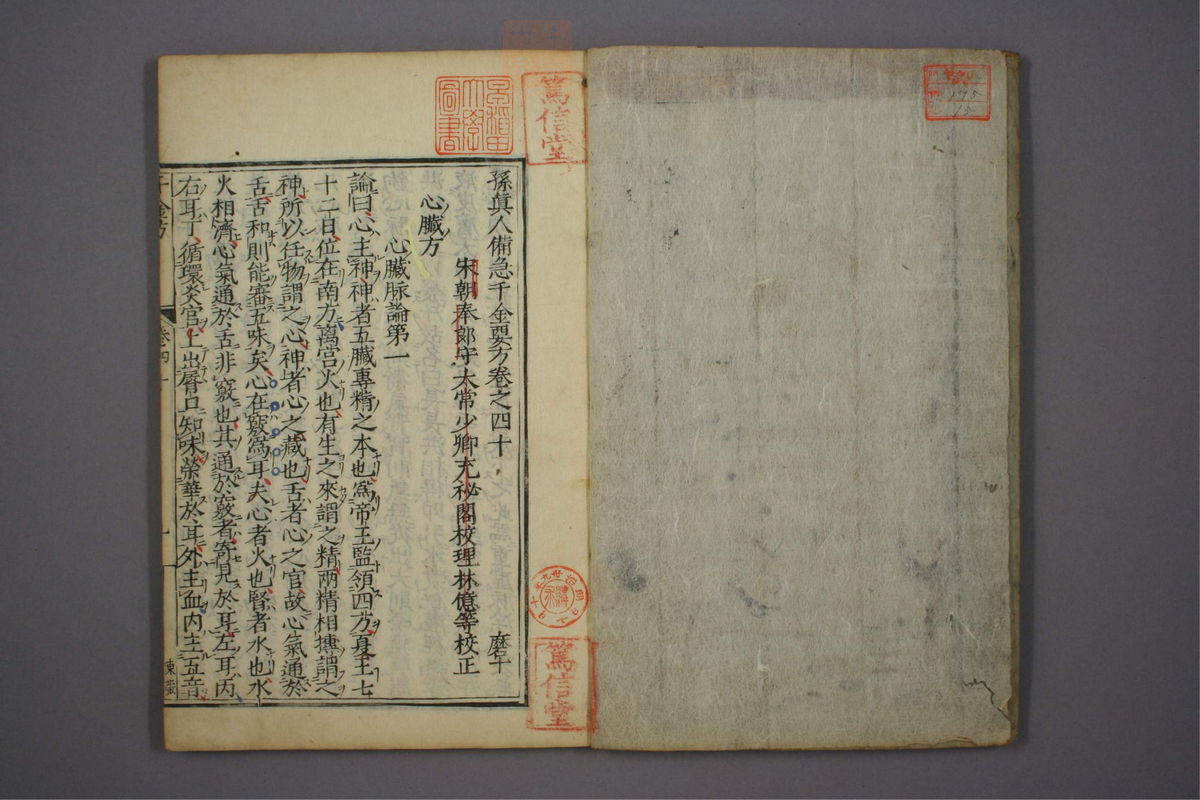 孫真人備急千金要方卷之四十 磨十
宋朝奉郎守太常少卿充秘閣校理林億等校正
心臟方
心臟脉論第一
論曰心主神神者五臟專精之本也爲帝王監領四方夏王七
十二日位在南方离宫火也有生之來謂之精兩精相摶謂之
神所以任物謂之心神者心之藏也舌者心之官故心氣通於
舌舌和則能審五味矣心在竅爲耳夫心者火也腎者水也水
火相濟心氣通於舌非竅也其通於竅者寄見於耳左耳丙
右耳丁循環炎宫上出脣口知味榮華於耳外主血内主五音
千金方 卷四十 一
篤信堂
篤信堂
早稻田大學圖書
175
15